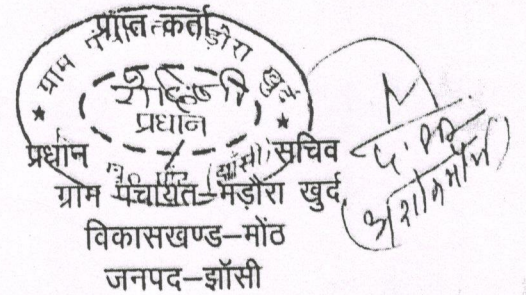 प्राप्त कर्ता
ग्राम पंचायत मड़ौरा खुर्द
प्रधान
प्रधान सचिव
ग्राम पंचायत-मड़ौरा खुर्द,
विकासखण्ड-मोंठ
जनपद-झॉसी